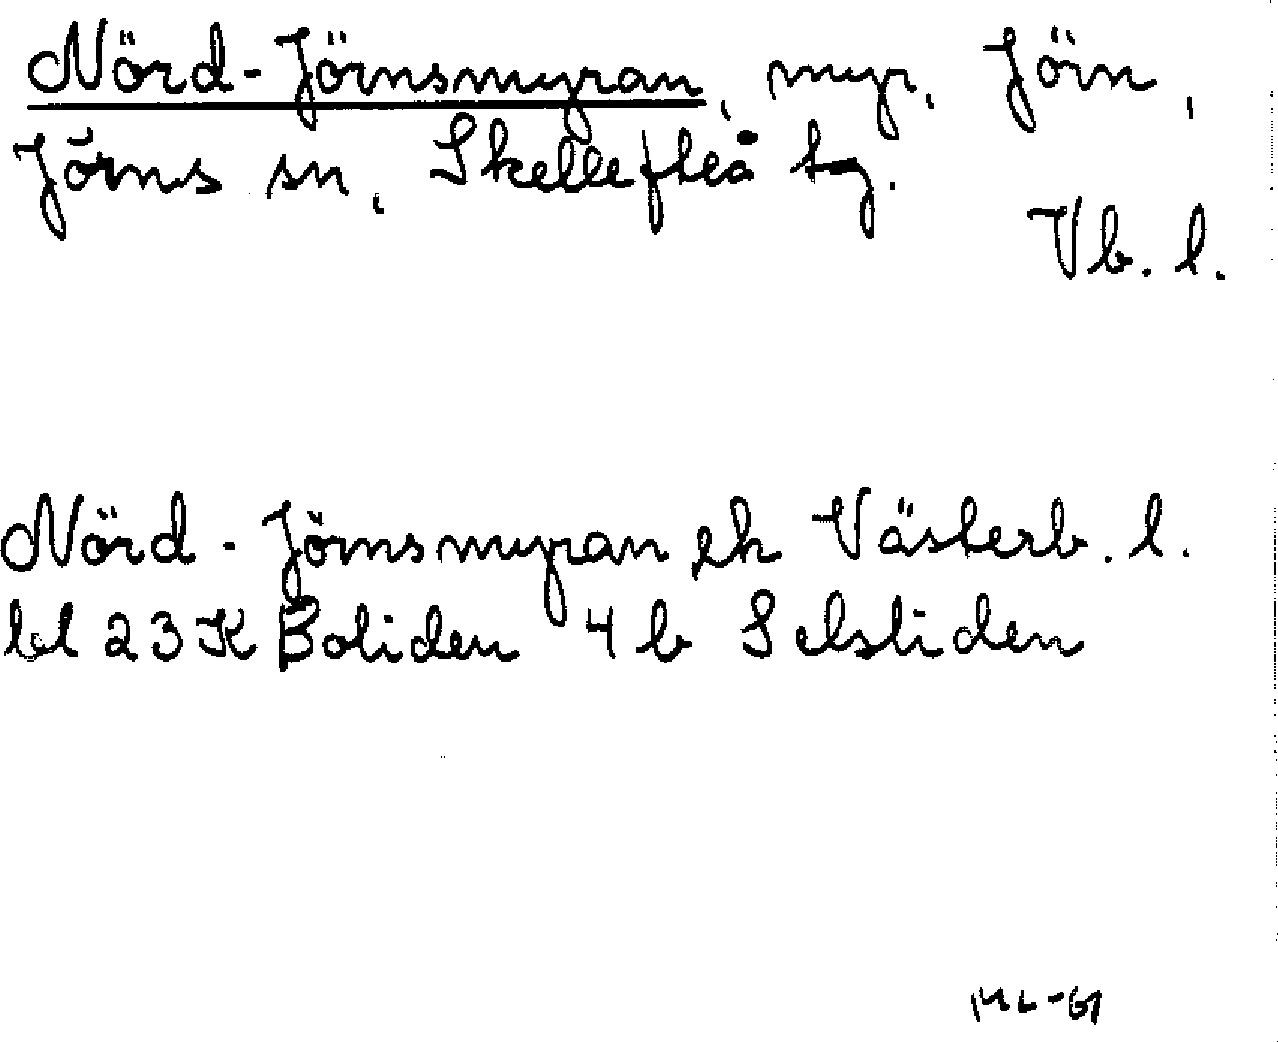 Nörd-Jörnsmyran, myr, Jörn,
Jörns sn, Skellefteå tg.
Vb. l.
Nörd-Jörnsmyran ek Västerb. l.
bl 23K Boliden 4b Selsliden